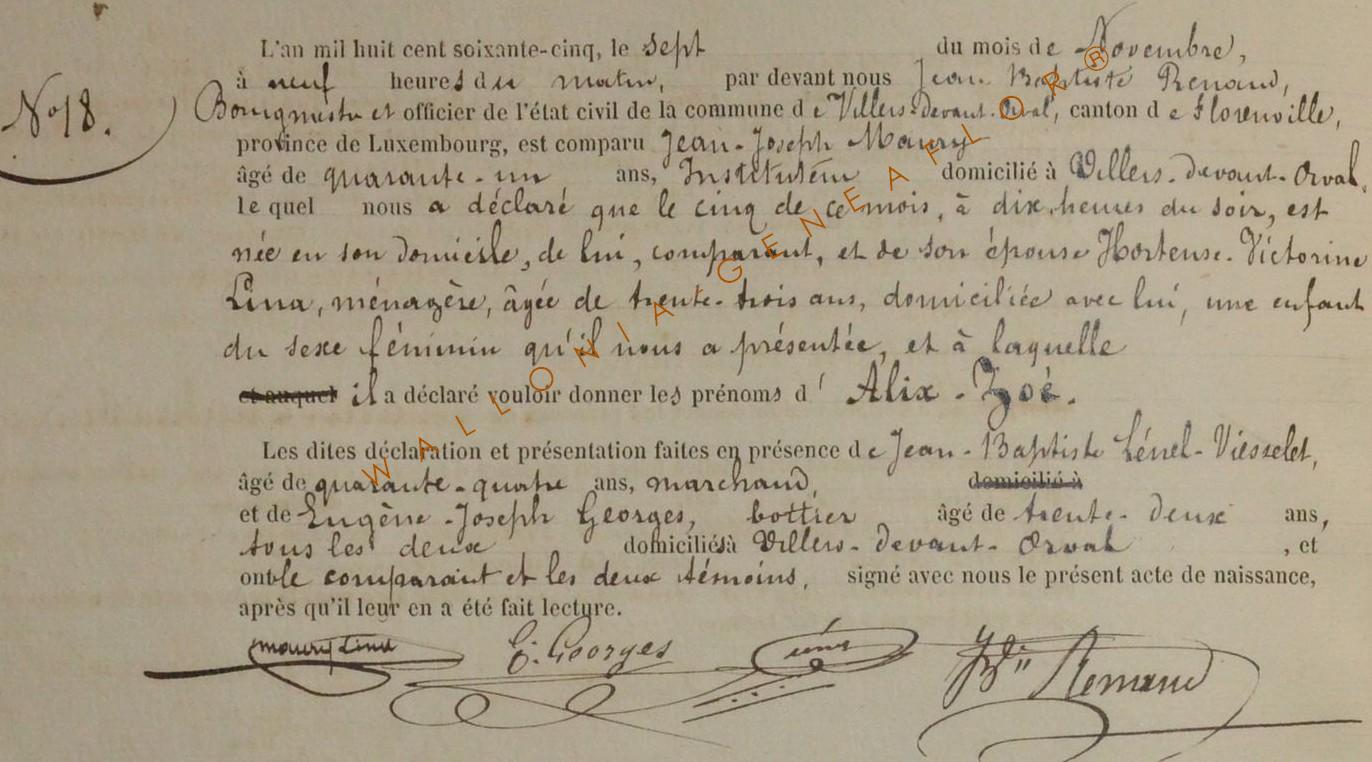 L'an mil huit cent soixante-cinq, le sept du mois de Novembre,
à neuf heures du matin, par devant nous Jean Baptiste Renaud,
No 18.
Bourgmestre et officier de l'état civil de la commune de Villers-devant-Orval, canton de Florenville,
province de Luxembourg, est comparu Jean-Joseph Maury
âgé de quarante-un ans, Instituteur domicilié à Villers-devant-Orval,
lequel nous a déclaré que le cinq de ce mois, à dix heures du soir, est
née en son domicile, de lui, comparant, et de son épouse Hortense-Victorine
Lina, ménagère, âgée de trente-trois ans, domiciliée avec lui, une enfant
du sexe féminin qu'il nous a présentée, et à laquelle
et auquel il a déclaré vouloir donner les prénoms d' Alix-Zoé.
Les dites déclaration et présentation faites en présence de Jean-Baptiste
âgé de quarante-quatre ans, marchand, domicilié à
et de Eugène-Joseph Georges, bottier âgé de trente-deux ans,
tous les deux domiciliés à Villers-devant-Orval, et
ont le comparant et les deux témoins, signé avec nous le présent acte de naissance,
après qu'il leur en a été fait lecture.
maury Lina E. Georges JBte Renaud
WALLONIA GENEAFLOR ®